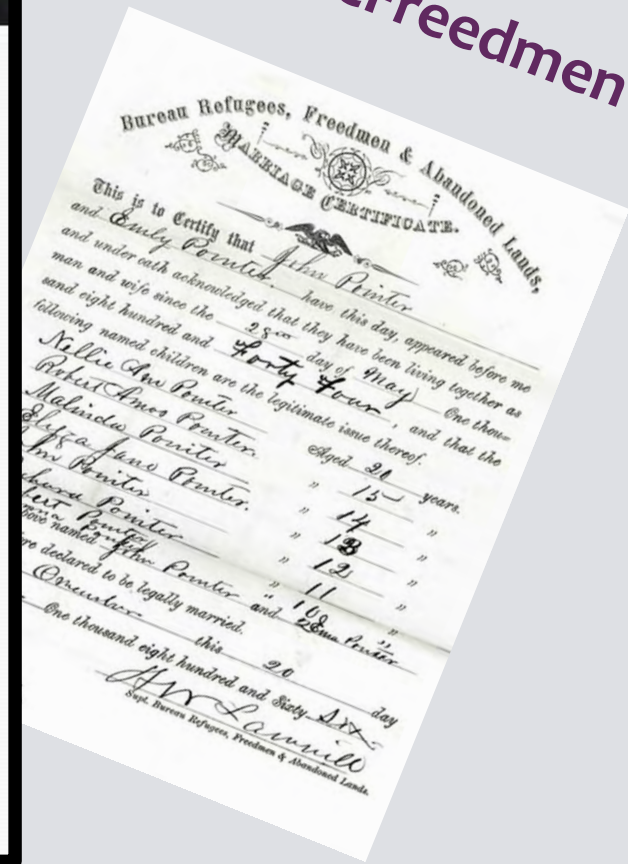 Freedmen
Bureau Refugees, Freedmen & Abandoned Lands,
MARRIAGE CERTIFICATE.
This is to Certify that John Pointer
and Emily Pointer have this day, appeared before me
and under oath acknowledged that they have been living together as
man and wife since the day of May One thou-
sand eight hundred and Forty Four, and that the
following named children are the legitimate issue thereof.
Nellie Ann Pointer Aged 20 years.
Robert Amos Pointer " 15 "
Malinda Pointer " 14 "
Eliza Jane Pointer. " 13 "
Pointer " 12 "
Pointer " 11 "
Pointer " 10 "
named John Pointer and Pointer
declared to be legally married.
this 20 day
One thousand eight hundred and Sixty Six
Supt. Bureau Refugees, Freedmen & Abandoned Lands.